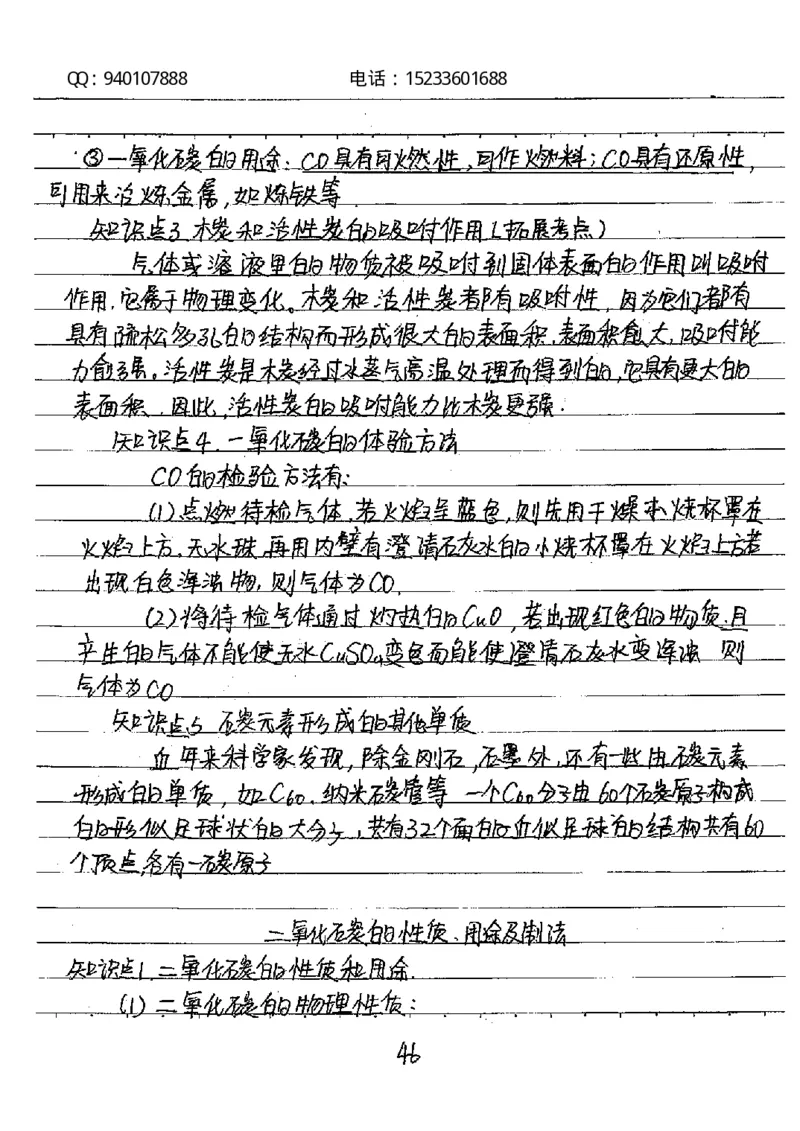 QQ：940107888 电话：15233601688
③一氧化碳的用途：CO具有可燃性，可作燃料；CO具有还原性，
可用来冶炼金属，如炼铁等
知识点3 木炭和活性炭的吸附作用（拓展考点）
气体或溶液里的物质被吸附到固体表面的作用叫吸附
作用，它属于物理变化。木炭和活性炭都有吸附性，因为它们都有
具有疏松多孔的结构而形成很大的表面积，表面积愈大，吸附能
力愈强。活性炭是木炭经过水蒸气高温处理而得到的，它具有更大的
表面积、因此，活性炭的吸附能力比木炭更强．
知识点4．一氧化碳的体验方法
CO的检验方法有：
(1)点燃待检气体，若火焰呈蓝色，则先用干燥小烧杯罩在
火焰上方，无水珠，再用内壁有澄清石灰水的小烧杯罩在火焰上方若
出现白色浑浊物，则气体为CO．
(2)将待检气体通过灼热的CuO，若出现红色的物质．且
产生的气体不能使无水CuSO₄变色而能使澄清石灰水变浑浊 则
气体为CO
知识点5 碳元素形成的其他单质
近年来科学家发现，除金刚石，石墨外，还有一些由碳元素
形成的单质，如C₆₀．纳米碳管等 一个C₆₀分子由60个碳原子构成
的形似足球状的大分子，共有32个面的近似足球的结构共有60
个顶点，各有一碳原子
二氧化碳的性质、用途及制法
知识点1．二氧化碳的性质和用途．
(1)二氧化碳的物理性质：
46